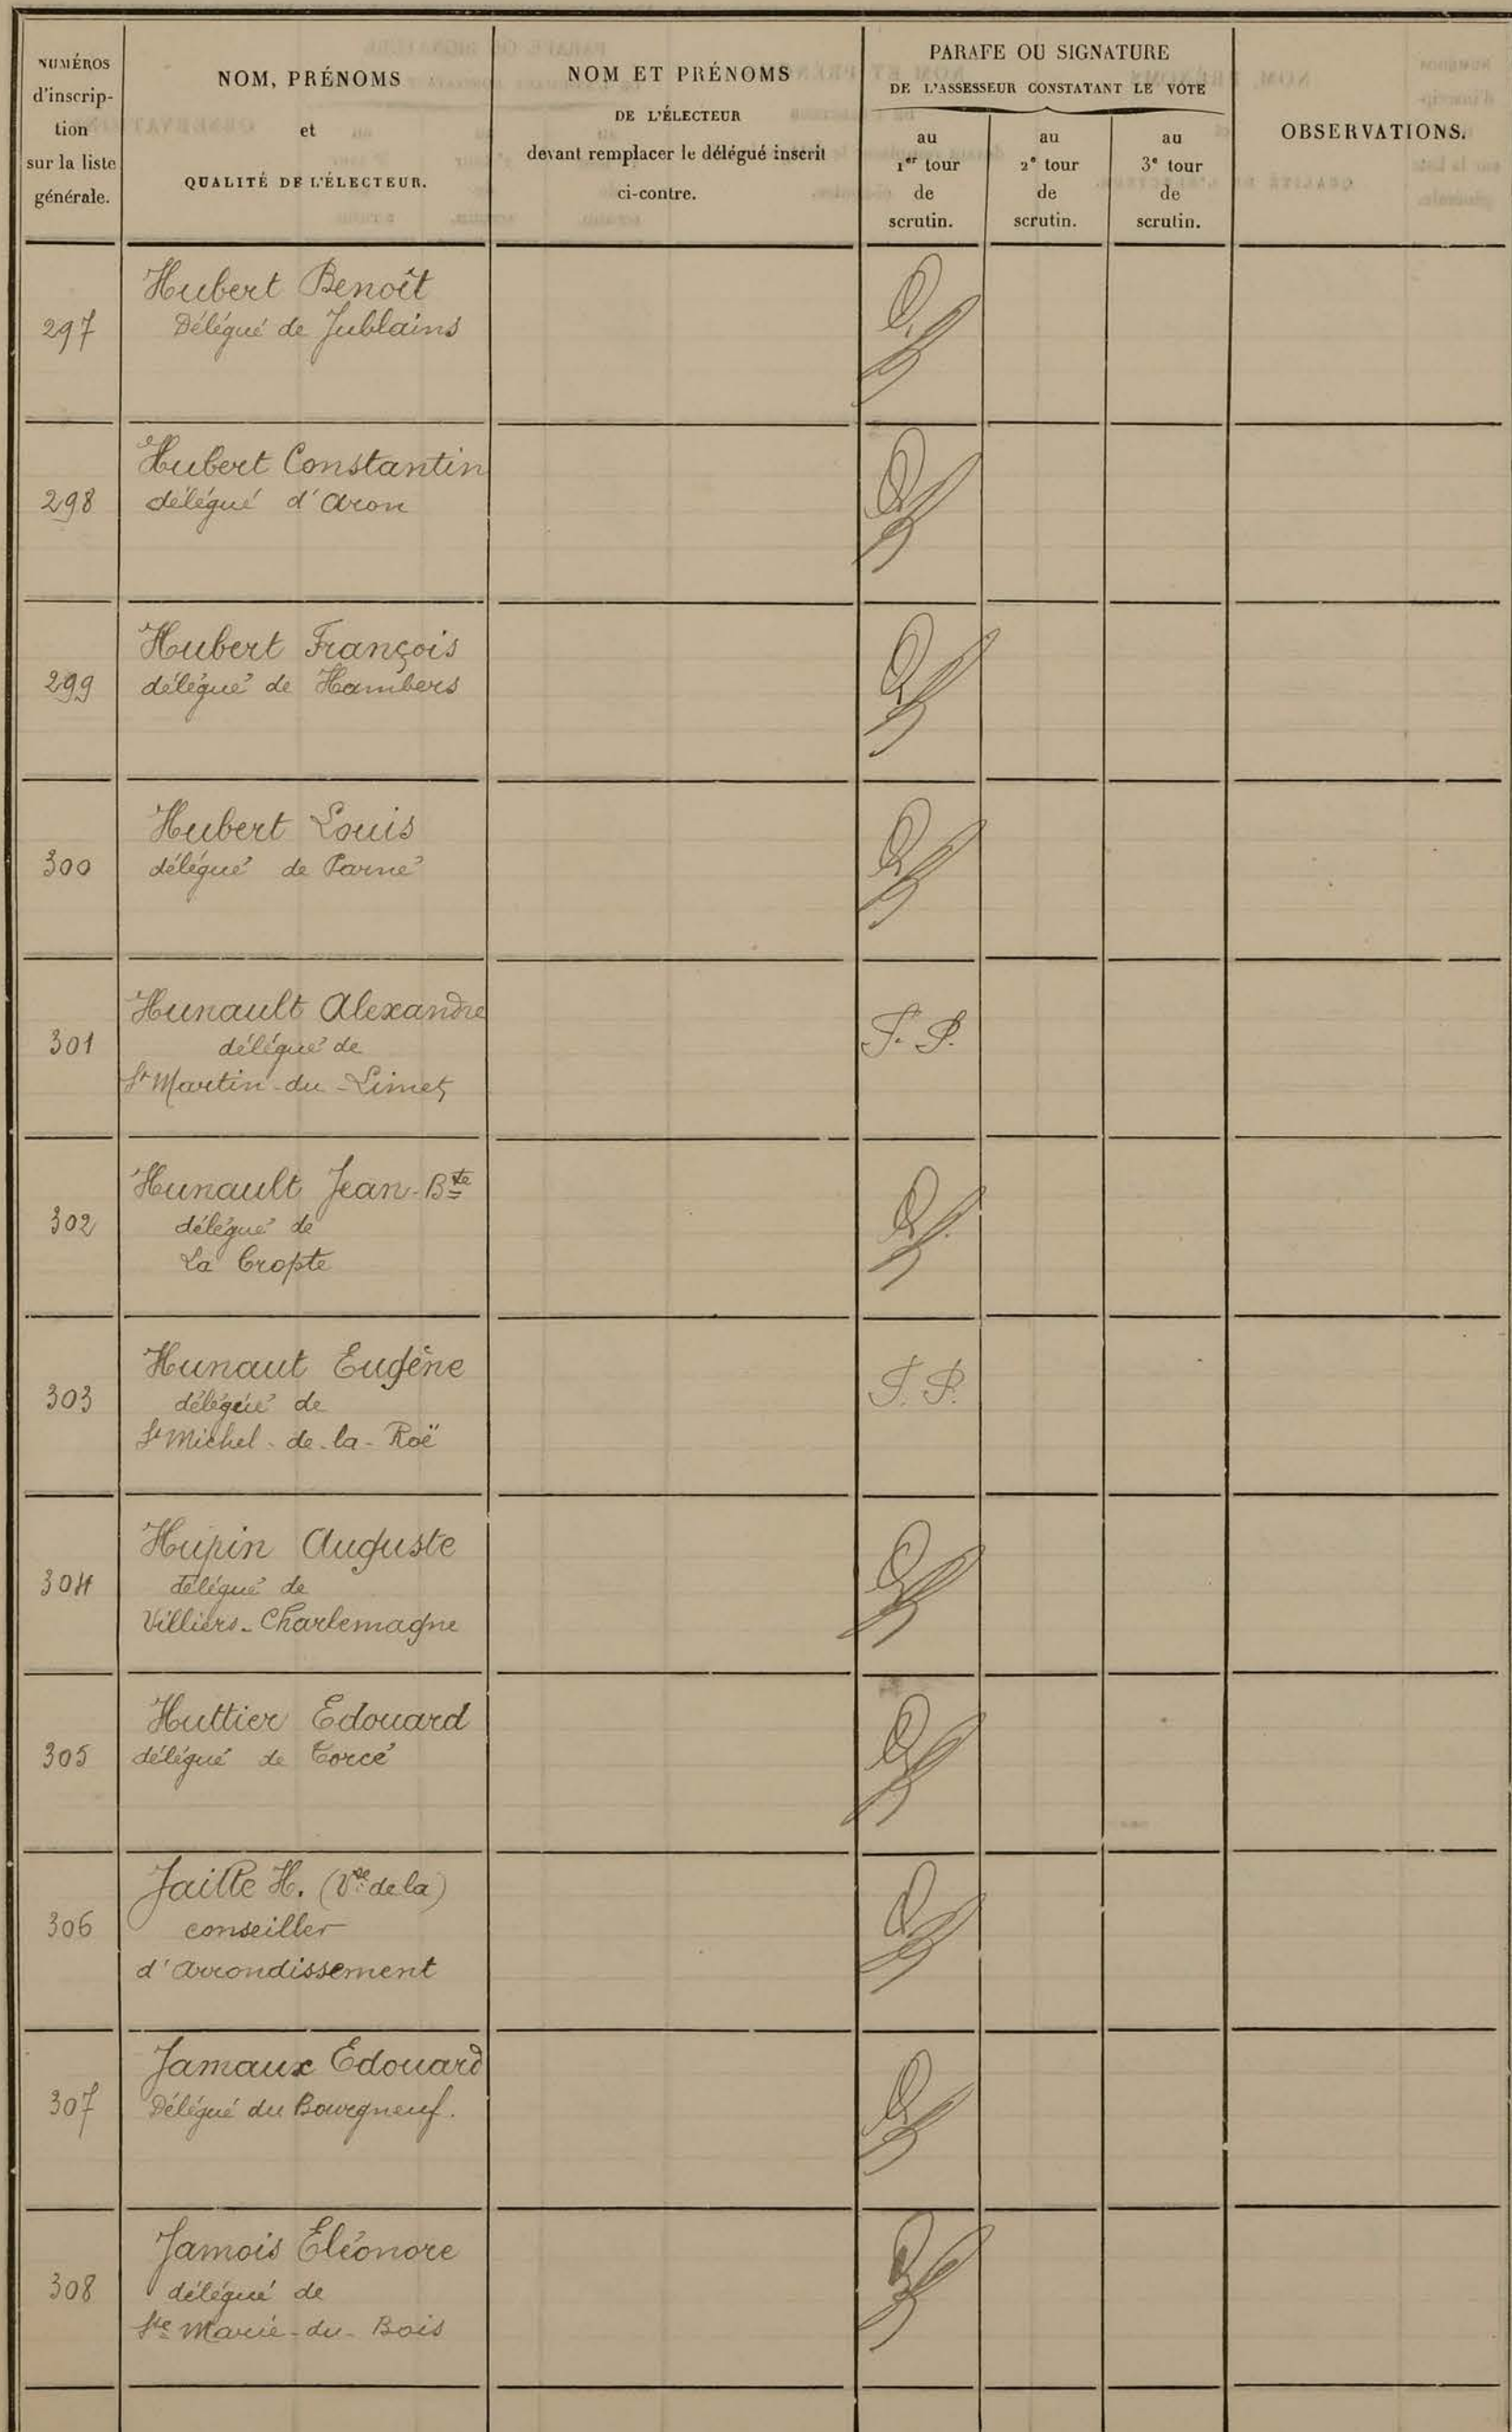 NUMÉROS
d'inscrip-
tion
sur la liste
générale.
NOM, PRÉNOMS
et
QUALITÉ DE L'ÉLECTEUR.
NOM ET PRÉNOMS
DE L'ÉLECTEUR
devant remplacer le délégué inscrit
ci-contre.
PARAFE OU SIGNATURE
DE L'ASSESSEUR CONSTATANT LE VOTE
au
1er tour
de
scrutin.
au
2e tour
de
scrutin.
au
3e tour
de
scrutin.
OBSERVATIONS.
297
Hubert Benoît
Délégué de Jublains
298
Hubert Constantin
délégué d'Aron
299
Hubert François
délégué de Hambers
300
Hubert Louis
délégué de Parné
301
Hunault Alexandre
délégué de
St Martin-du-Limet
J. P.
302
Hunault Jean-Bte
délégué de
La Cropte
303
Hunaut Eugène
délégué de
St Michel-de-la-Roë
J. P.
304
Hupin Auguste
délégué de
Villiers-Charlemagne
305
Huttier Edouard
délégué de Torcé
306
Jaille H. (Vte de la)
conseiller
d'Arrondissement
307
Jamaux Edouard
Délégué du Bourgneuf.
308
Jamois Eléonore
délégué de
Ste Marie-du-Bois